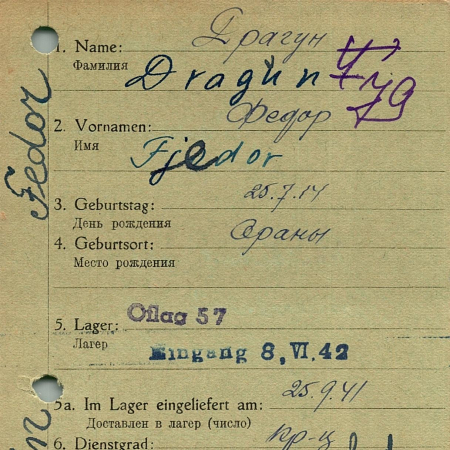 Fedor
1. Name: Драгун
Фамилия Dragun
2. Vornamen: Федор
Имя Fjedor
3. Geburtstag: 25.7.14
День рождения
4. Geburtsort: Ораны
Место рождения
5. Lager: Oflag 57
Лагер
Eingang 8. VI. 42
5a. Im Lager eingeliefert am: 25.9.41
Доставлен в лагер (число)
6. Dienstgrad: кр-ц